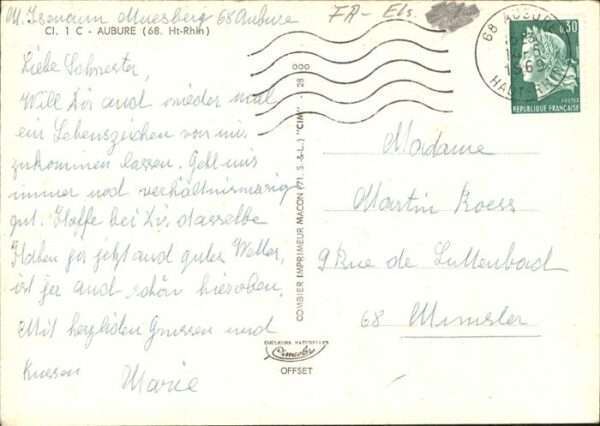 M. Isenann Muesberg 68 Aubure
FR - Els.
Cl. 1 C - AUBURE (68. Ht-Rhin)
Liebe Schwester,
Will Dir auch wieder mal
ein Lebenszeichen von mir
zukommen lassen. Geht mir
immer noch verhältnismässig
gut. Hoffe bei Dir dasselbe
Haben ja jetzt auch gutes Wetter,
ist ja auch schön hieroben.
Mit herzlichen Grüssen und
Küssen
Marie
COMBIER IMPRIMEUR MACON (71. S.-&-L.) "CIM" - 28 000
COULEURS NATURELLES
Cimcolor
OFFSET
68 AUBURE
1969
HAUT-RHIN
0,30
POSTES
REPUBLIQUE FRANÇAISE
Madame
Martin Koess
9 Rue de Luttenbach
68 Munster